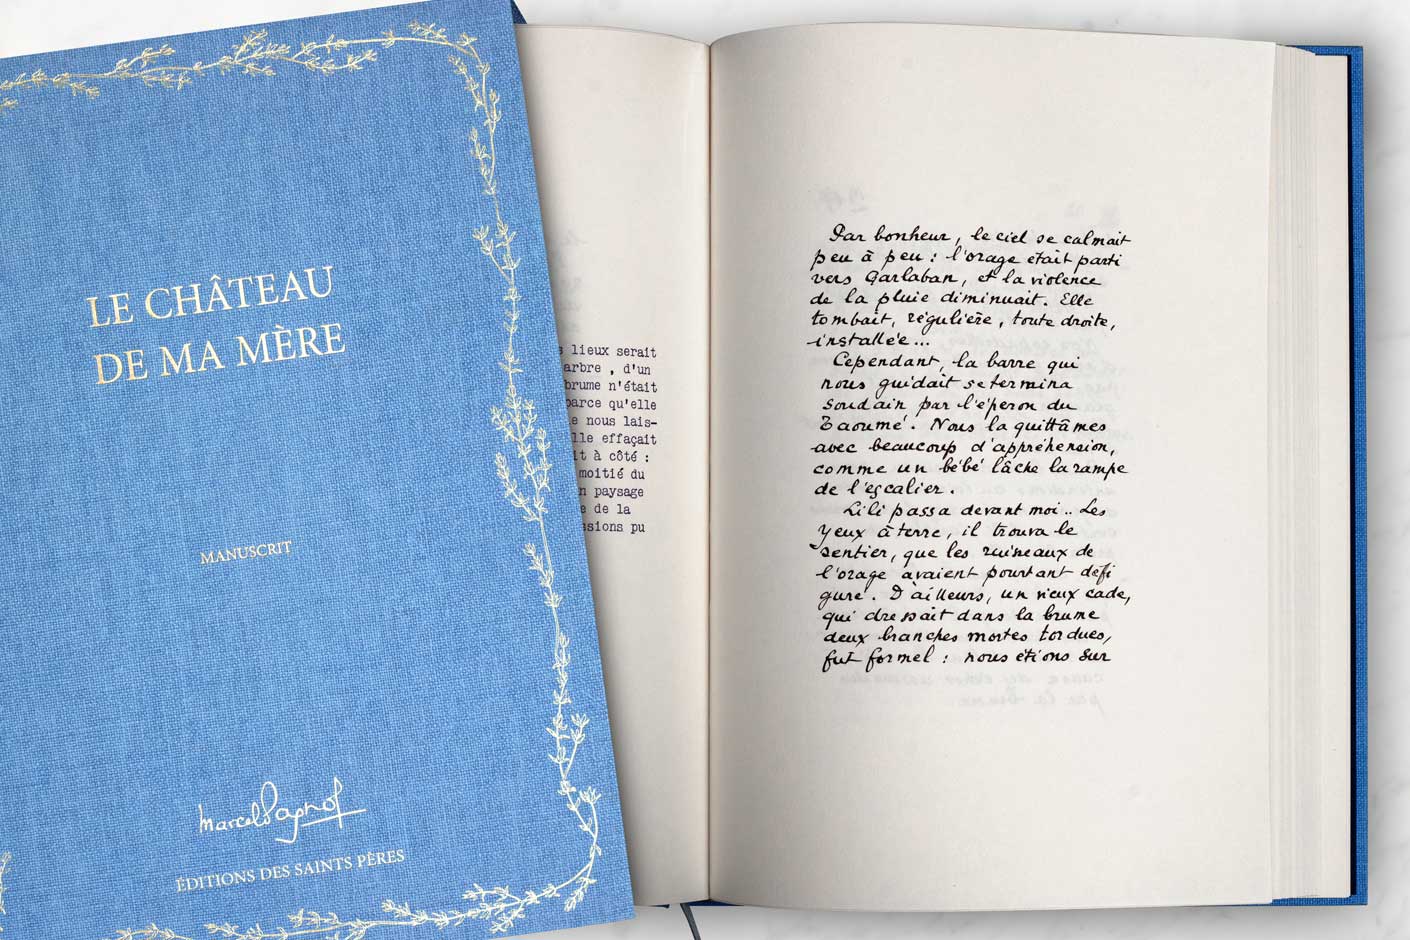 LE CHÂTEAU
DE MA MÈRE
MANUSCRIT
Marcel Pagnol
ÉDITIONS DES SAINTS PÈRES
lieux serait
arbre , d'un
brume n'était
parce qu'elle
nous lais-
effaçait
à côté :
moitié du
paysage
de la
pu
Par bonheur, le ciel se calmait
peu à peu : l'orage était parti
vers Garlaban, et la violence
de la pluie diminuait. Elle
tombait, régulière, toute droite,
installée...
Cependant, la barre qui
nous guidait se termina
soudain par l'éperon du
Taoumé. Nous la quittâmes
avec beaucoup d'appréhension,
comme un bébé lâche la rampe
de l'escalier.
Lili passa devant moi.. Les
yeux à terre, il trouva le
sentier, que les ruisseaux de
l'orage avaient pourtant défi
guré. D'ailleurs, un vieux cade,
qui dressait dans la brume
deux branches mortes tordues,
fut formel : nous étions sur